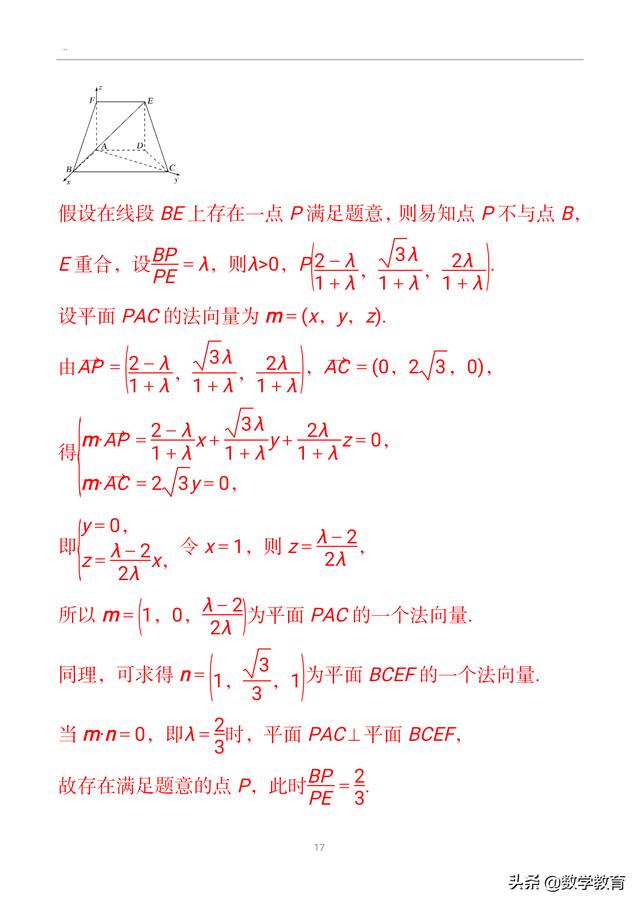 ..
z
F E
A D
B C
x y
假设在线段 BE 上存在一点 P 满足题意，则易知点 P 不与点 B，
E 重合，设BP/PE = λ，则λ>0，P((2-λ)/(1+λ)，√3λ/(1+λ)，2λ/(1+λ)).
设平面 PAC 的法向量为 m = (x，y，z).
由AP→ = ((2-λ)/(1+λ)，√3λ/(1+λ)，2λ/(1+λ))，AC→ = (0，2√3，0)，
得{m·AP→ = (2-λ)/(1+λ)x + √3λ/(1+λ)y + 2λ/(1+λ)z = 0，
m·AC→ = 2√3y = 0，
即{y = 0，
z = (λ-2)/2λ x， 令 x = 1，则 z = (λ-2)/2λ，
所以 m = (1，0，(λ-2)/2λ)为平面 PAC 的一个法向量.
同理，可求得 n = (1，√3/3，1)为平面 BCEF 的一个法向量.
当 m·n = 0，即λ = 2/3时，平面 PAC⊥平面 BCEF，
故存在满足题意的点 P，此时BP/PE = 2/3.
17
头条 @数学教育